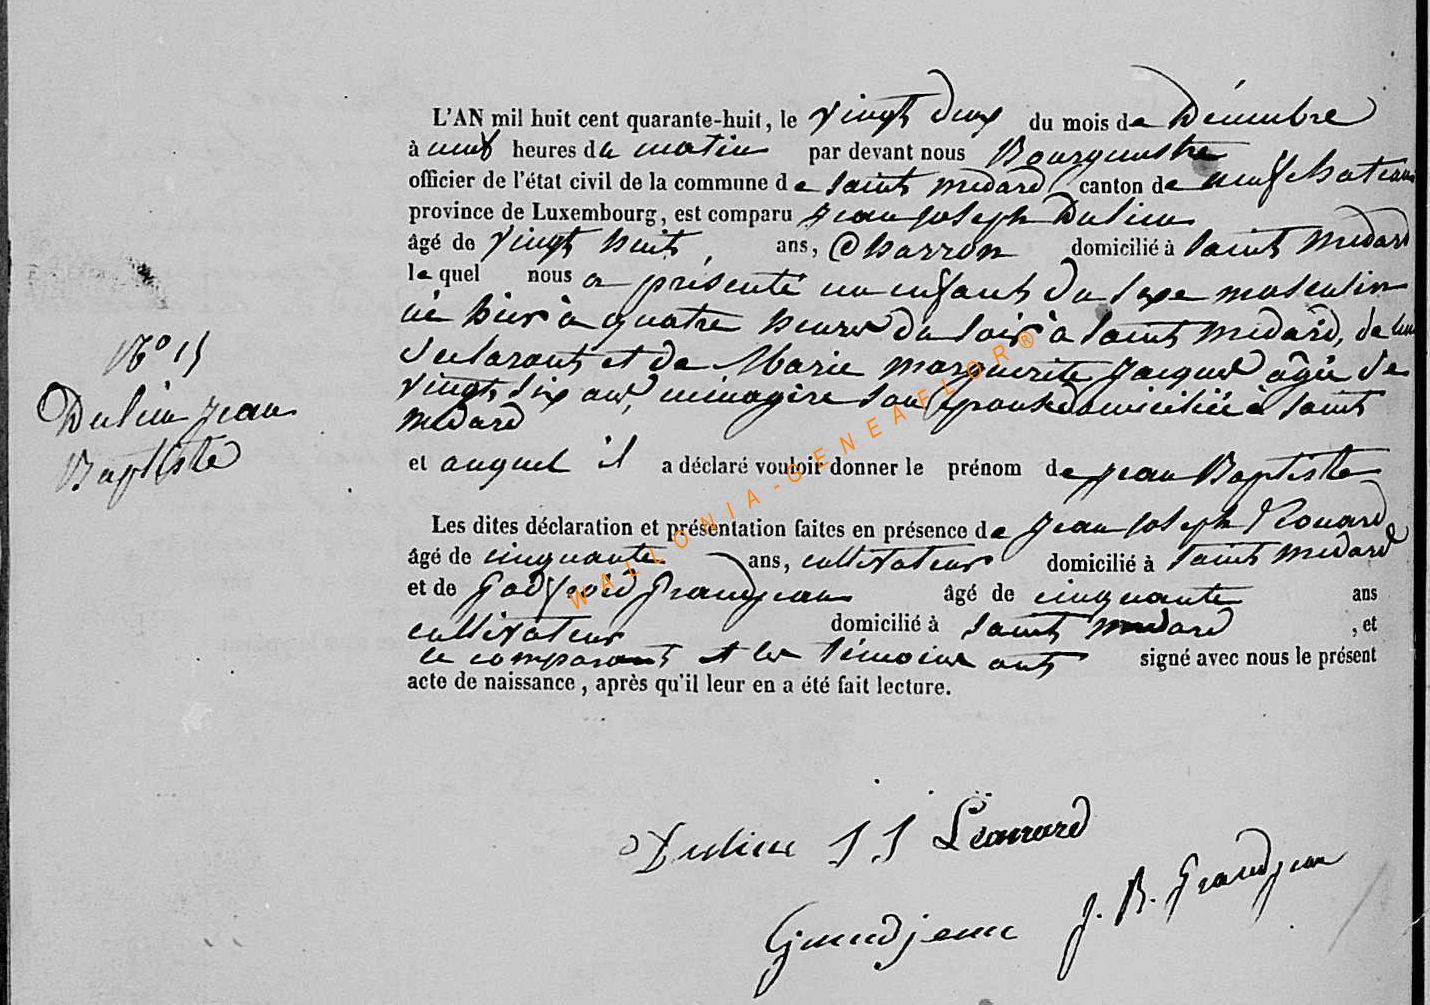 L'AN mil huit cent quarante-huit, le vingt deux du mois de Décembre
à neuf heures du matin par devant nous Bourguemestre
officier de l'état civil de la commune de Saint Médard canton de neufchateau
province de Luxembourg, est comparu Jean Joseph Dulieu
âgé de vingt huit, ans, Charron domicilié à Saint Médard
lequel nous a présenté un enfant du sexe masculin
né hier à quatre heures du soir à Saint Médard, de lui
declarant et de Marie Marguerite Jacques âgée de
vingt six ans, ménagère son épouse domiciliée à Saint
Médard
N° 15
Dulieu Jean
Baptiste
et auquel il a déclaré vouloir donner le prénom de Jean Baptiste
Les dites déclaration et présentation faites en présence de Jean Joseph Léonard
âgé de cinquante ans, cultivateur domicilié à Saint Médard
et de Godfroid Grandjean âgé de cinquante ans
cultivateur domicilié à Saint Médard, et
le comparant et les témoins ont signé avec nous le présent
acte de naissance, après qu'il leur en a été fait lecture.
WALLONIA-GENEAFLOR®
Dulieu J J Léonard
Grandjean J. B. Grandjean